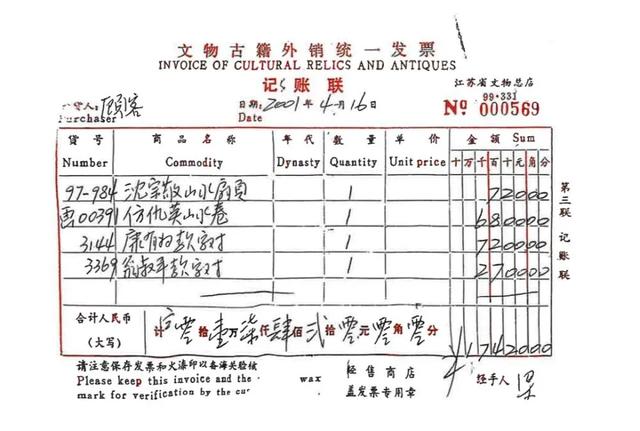 文物古籍外销统一发票
INVOICE OF CULTURAL RELICS AND ANTIQUES
记账联
江苏省文物总店
99·331
货人: 顾客 日期: 2001年4月16 № 000569
Purchaser Date
货号 商品名称 年代 数量 单价 金额 Sum
Number Commodity Dynasty Quantity Unit price 十万千百十元角分
97-984 沈宗敬山水扇页 1 72000
画00391 仿仇英山水卷 1 680000
3144 康有为款字对 1 720000
3369 翁叔平款字对 1 270000
第三联 记账联
合计人民币 计 零拾壹万柒仟肆佰弍拾零元零角零分 ¥1742000
(大写)
请注意保存发票和火漆印以备海关验核 经售商店 经手人
Please keep this invoice and the wax 盖发票专用章
mark for verification by the cu